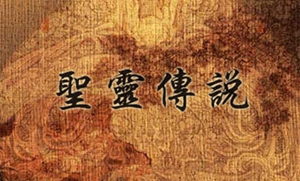 聖靈傳說